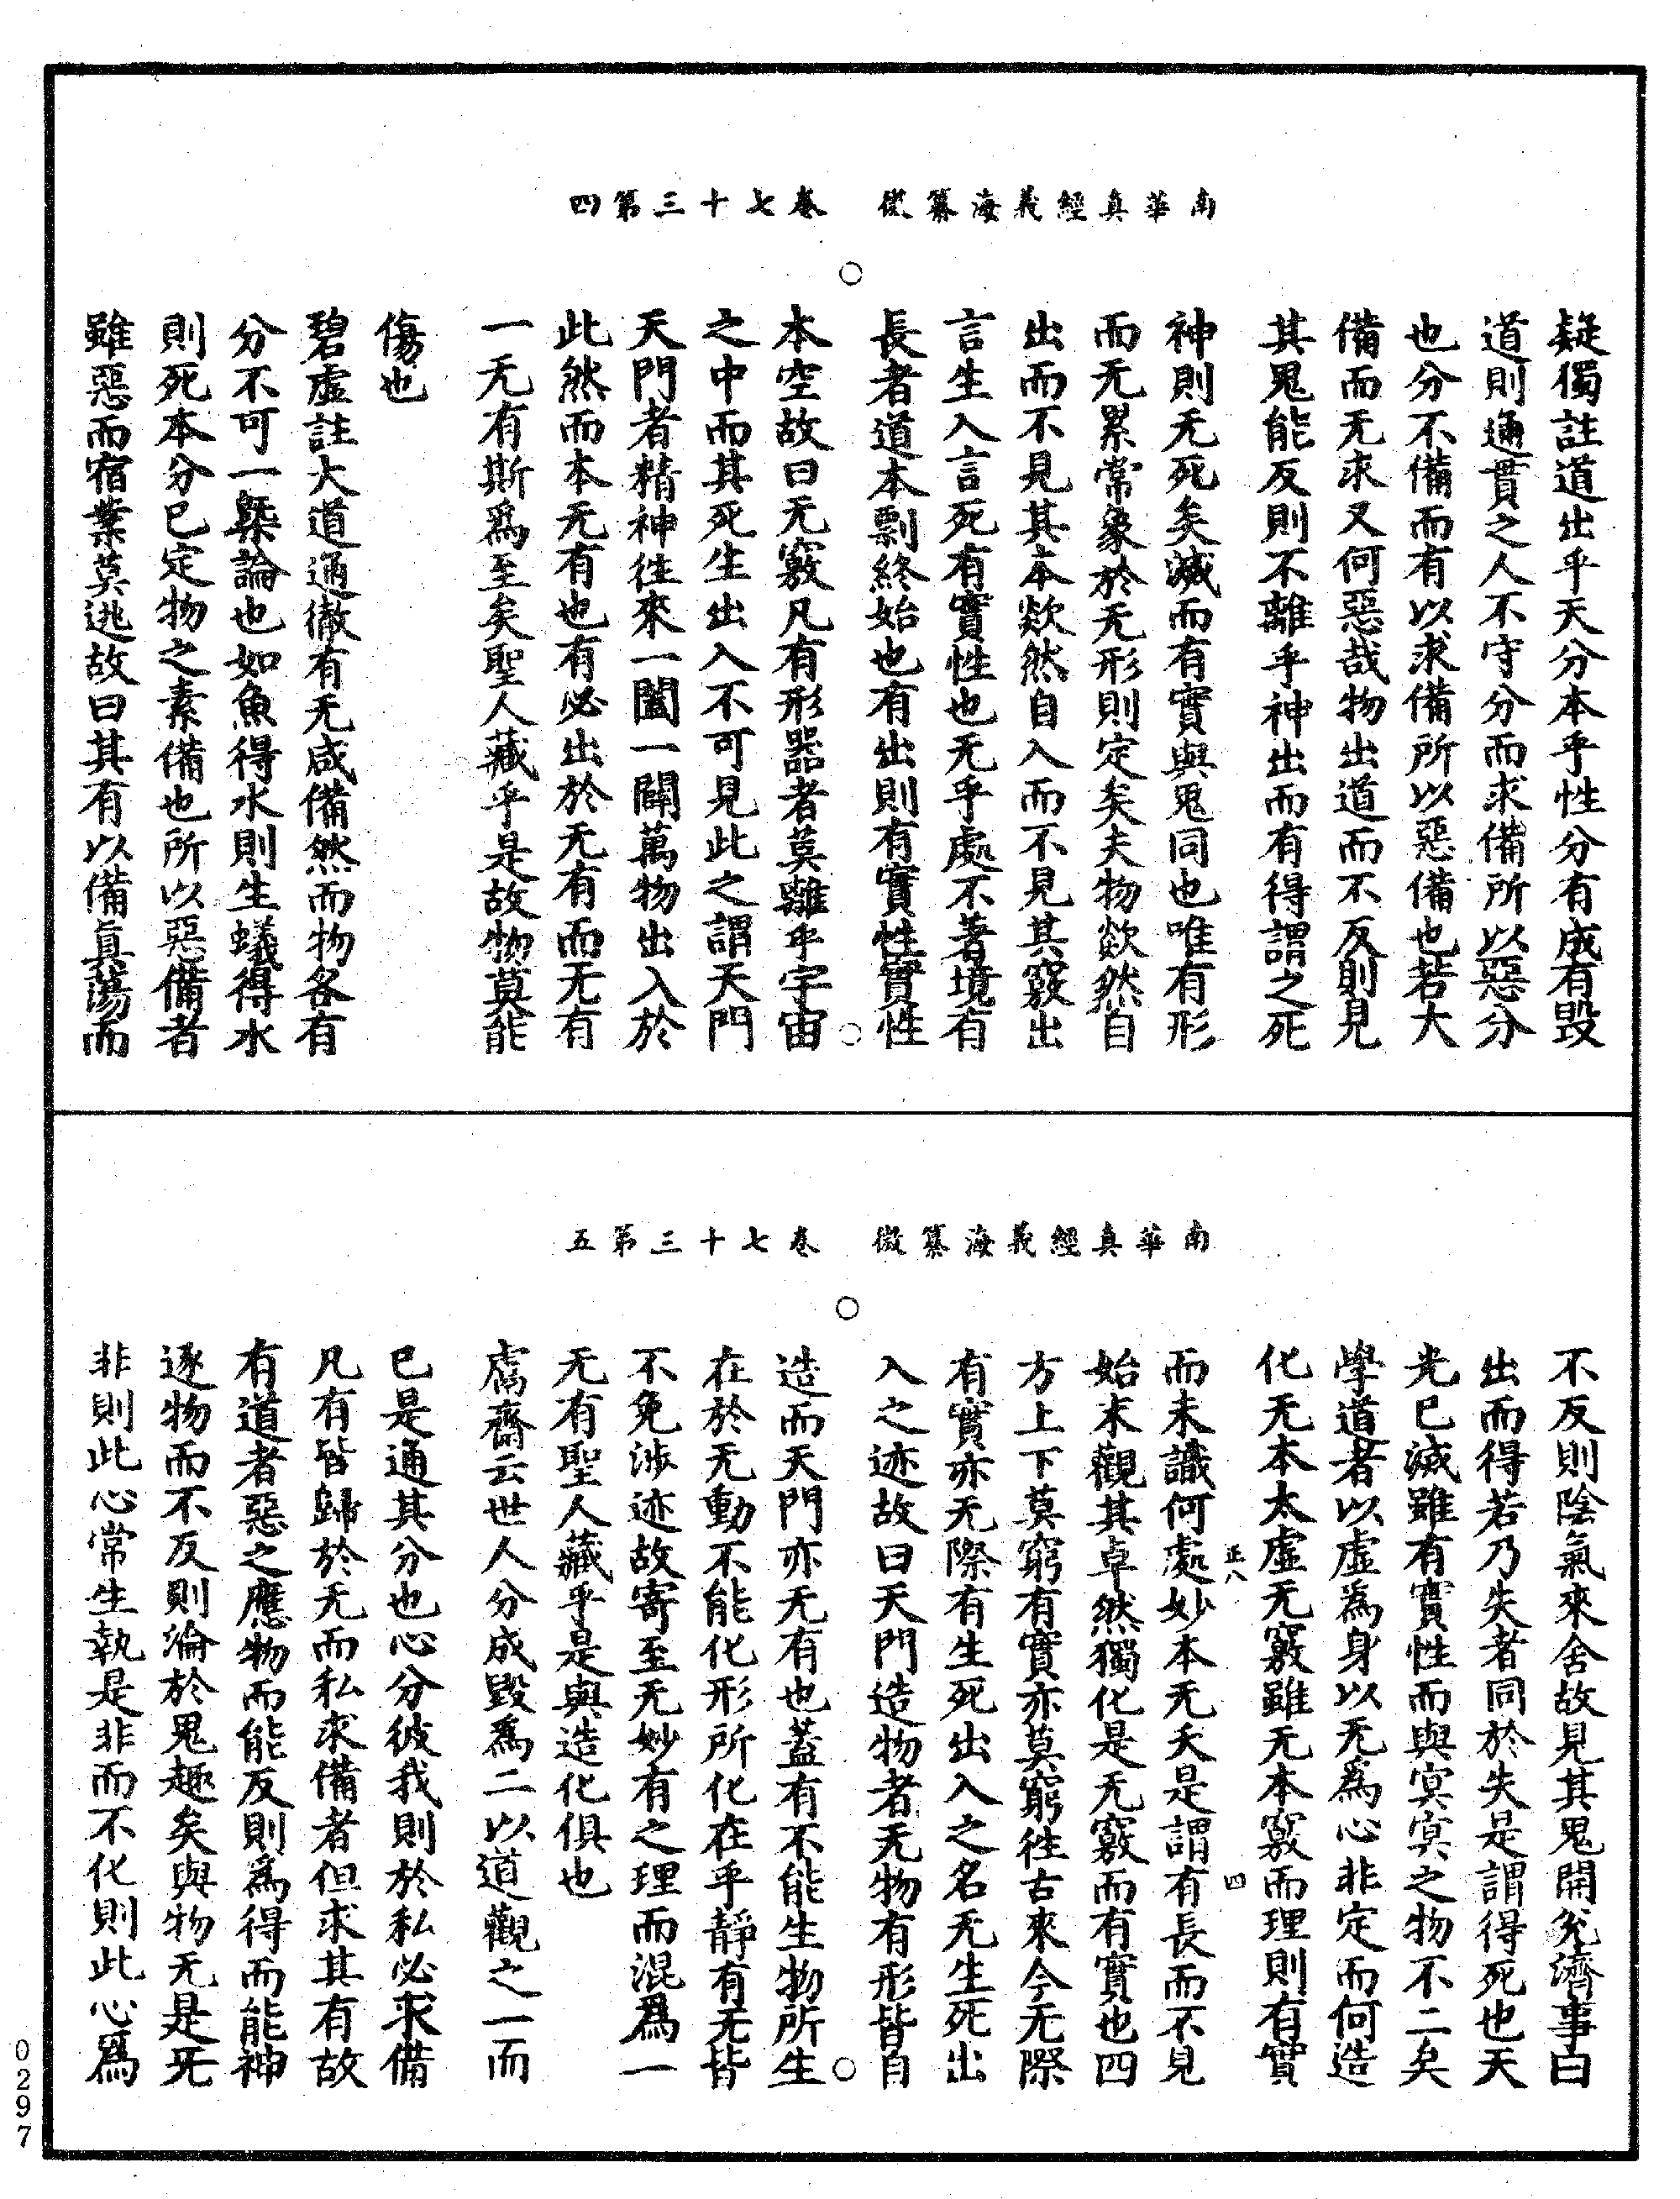 南華真經義海纂微　卷七十三第四
疑獨註道出乎天分本乎性分有成有毀
道則通貫之人不守分而求備所以惡分
也分不備而有以求備所以惡備也若大
備而无求又何惡哉物出道而不反則見
其鬼能反則不離乎神出而有得謂之死
神則无死矣滅而有實與鬼同也唯有形
而无累常象於无形則定矣夫物欻然自
出而不見其本欻然自入而不見其竅出
言生入言死有實性也无乎處不著境有
長者道本剽終始也有出則有實性實性
本空故曰无竅凡有形器者莫離乎宇宙
之中而其死生出入不可見此之謂天門
天門者精神往來一闔一闢萬物出入於
此然而本无有也有必出於无有而无有
一无有斯爲至矣聖人藏乎是故物莫能
傷也
碧虛註大道通徹有无咸備然而物各有
分不可一槩論也如魚得水則生蟻得水
則死本分已定物之素備也所以惡備者
雖惡而宿業莫逃故曰其有以備真蕩而
南華真經義海纂微　卷七十三第五
不反則陰氣來舍故見其鬼開兊濟事白
出而得若乃失者同於失是謂得死也天
光已滅雖有實性而與冥冥之物不二矣
學道者以虛為身以无爲心非定而何造
化无本太虛无竅雖无本竅而理則有實
正八　四
而未識何處妙本无夭是謂有長而不見
始末觀其卓然獨化是无竅而有實也四
方上下莫窮有實亦莫窮往古來今无際
有實亦无際有生死出入之名无生死出
入之迹故曰天門造物者无物有形皆自
造而天門亦无有也蓋有不能生物所生
在於无動不能化形所化在乎靜有无皆
不免涉迹故寄至无妙有之理而混爲一
无有聖人藏乎是與造化俱也
鬳齋云世人分成毀爲二以道觀之一而
已是通其分也心分彼我則於私必求備
凡有皆歸於无而私求備者但求其有故
有道者惡之應物而能反則爲得而能神
逐物而不反則淪於鬼趣矣與物无是无
非則此心常生執是非而不化則此心爲
0297